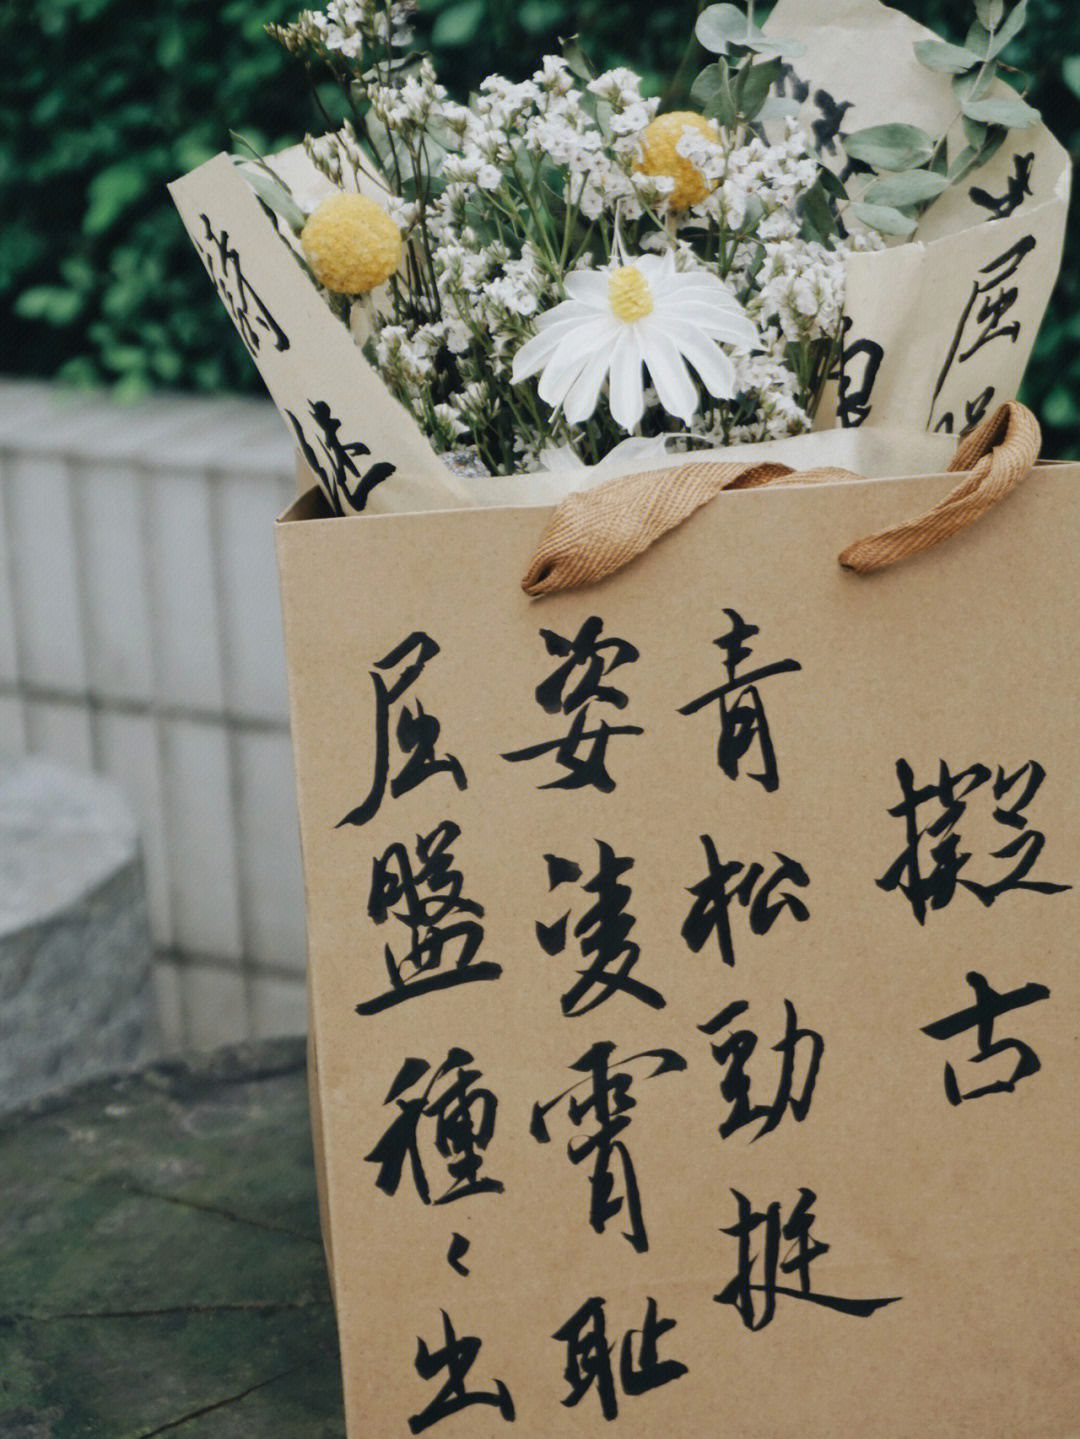 擬古
青松勁挺
姿凌霄耻
屈盤種々出